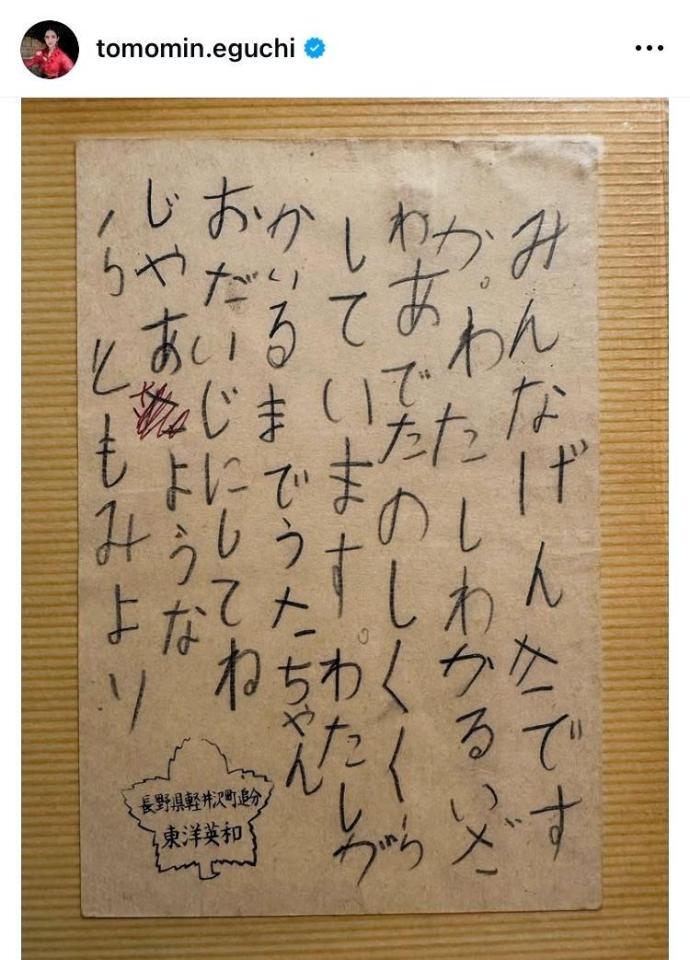 tomomin.eguchi
みんなげんきです
か。わたしわかるいざ
わあでたのしくくら
しています。わたしが
かいるまでうたちゃん
おだいじにしてね
じやあ ような
ら ともみより
長野県軽井沢町追分
東洋英和